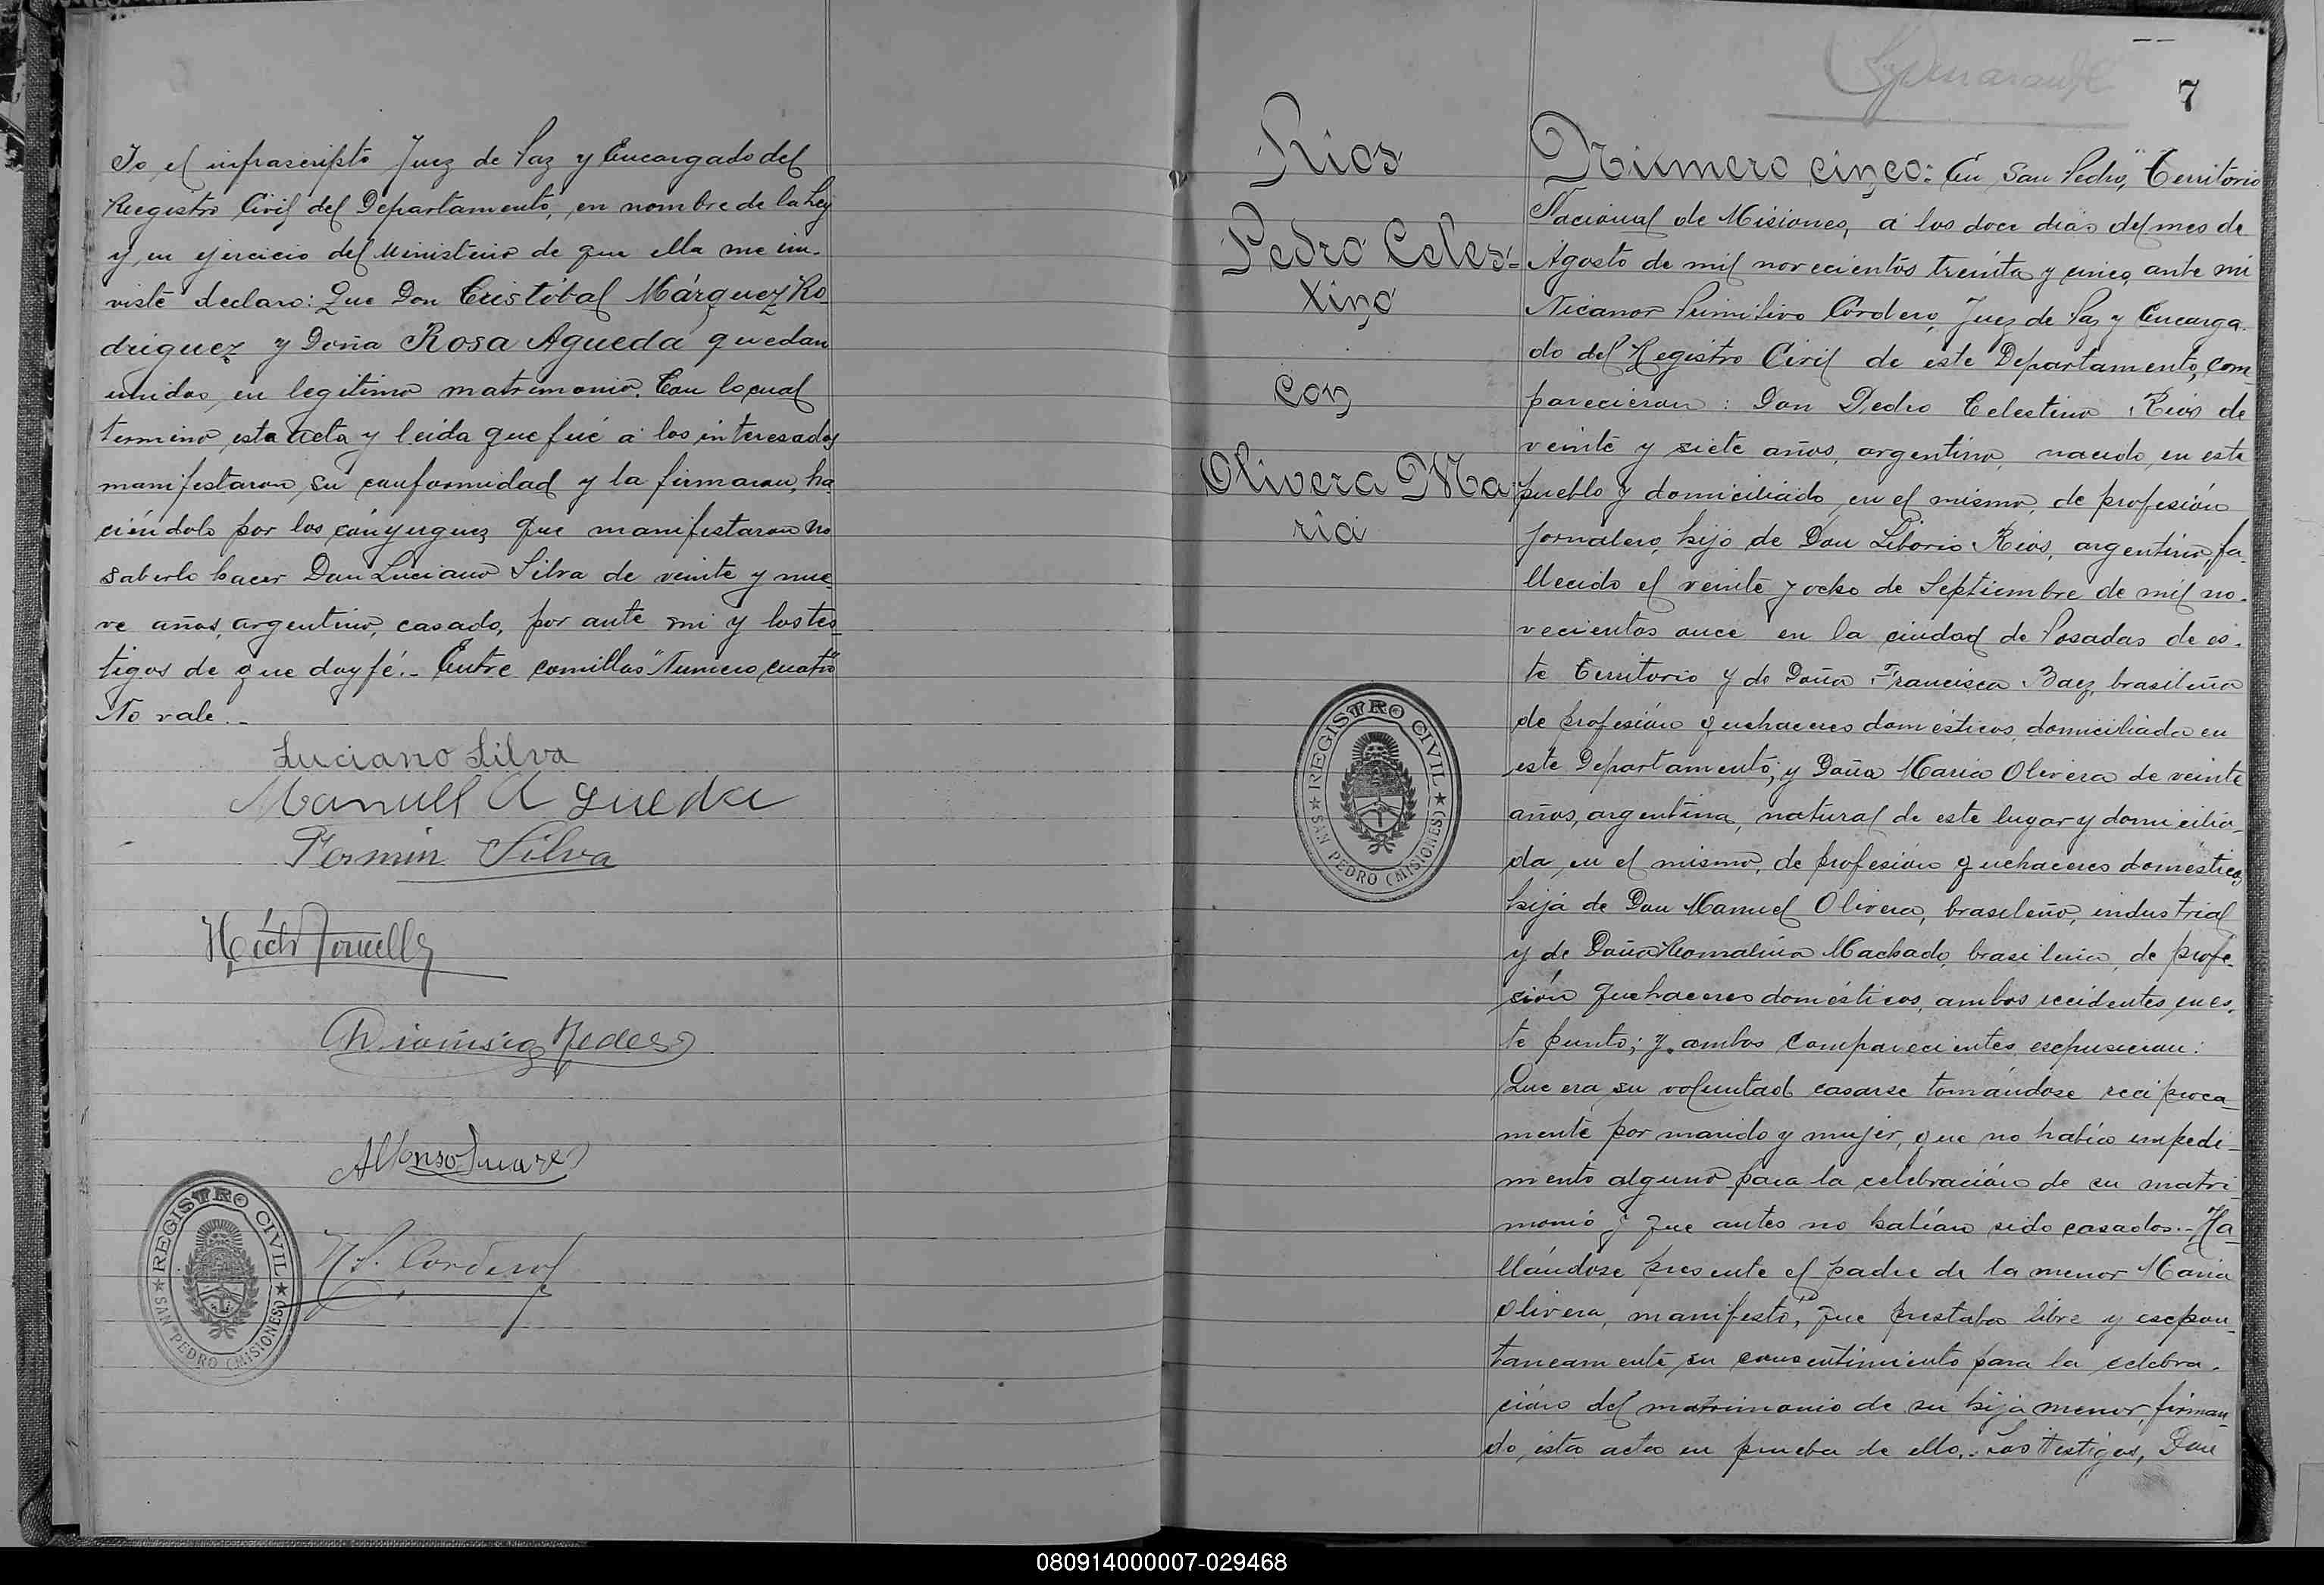 Yo, el infrascripto Juez de Paz y Encargado del
Registro Civil del Departamento, en nombre de la Ley
y, en ejercicio del Ministerio de que ella me in-
viste declaro: Que Don Cristóbal Márquez Ro-
driguez y Doña Rosa Agueda quedan
unidos en legitimo matrimonio. Con lo cual
termino esta acta y leida que fué a los interesados
manifestaron su conformidad y la firmaron, ha-
ciéndolo por los cónyugues que manifestaron no
saberlo hacer Don Luciano Silva de veinte y nue-
ve años, argentino, casado, por ante mi y los tes-
tigos de que doy fé.- Entre comillas "Numero cuatro"
No vale.-
Luciano Silva
Manuel Agueda
Fermin Silva
Alfonso Suarez
N. P. Cordero
REGISTRO CIVIL
SAN PEDRO (MISIONES)
7
Rios
Pedro Celes-
tino
con
Olivera Ma
ria
REGISTRO CIVIL
SAN PEDRO (MISIONES)
Número cinco: En San Pedro, Territorio
Nacional de Misiones, a los doce dias del mes de
Agosto de mil novecientos treinta y cinco, ante mi
Nicanor Primitivo Cordero, Juez de Paz y Encarga-
do del Registro Civil de este Departamento, com-
parecieron: Don Pedro Celestino Rios de
veinte y siete años, argentino, nacido en este
pueblo y domiciliado en el mismo, de profesión
jornalero, hijo de Don Liborio Rios, argentino, fa-
llecido el veinte y ocho de Septiembre de mil no-
vecientos once en la ciudad de Posadas de es-
te Territorio y de Doña Francisca Baez, brasileña
de profesión quehaceres domésticos, domiciliada en
este Departamento; y Doña Maria Olivera de veinte
años, argentina, natural de este lugar y domicilia-
da en el mismo, de profesión quehaceres domesticos,
hija de Don Manuel Olivera, brasileño, industrial
y de Doña Machado, brasileña, de profe-
ción quehaceres domésticos, ambos recidentes en es-
te punto; y ambos comparecientes escpusieron:
Que era su voluntad casarse tomándose recíproca-
mente por marido y mujer, que no había impedi-
mento alguno para la celebración de su matri-
monio y que antes no habían sido casados.- Ha-
llándose presente el padre de la menor Maria
Olivera, manifestó, que prestaba libre y escpon-
taneamente su consentimiento para la celebra-
ción del matrimonio de su hija menor, firman-
do, esta acta en prueba de ello.- Los testigos, Don
080914000007-029468